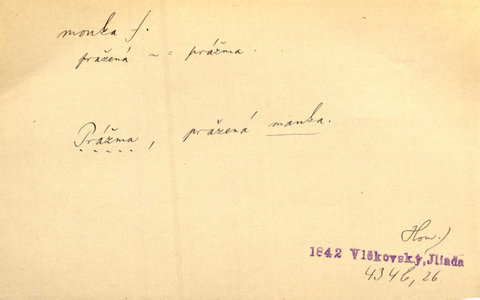 monka f.
pražená ~ = prážma.
Prážma, pražená manka.
Hom.)
1842 Vlčkovský, Jliada
434b, 26.